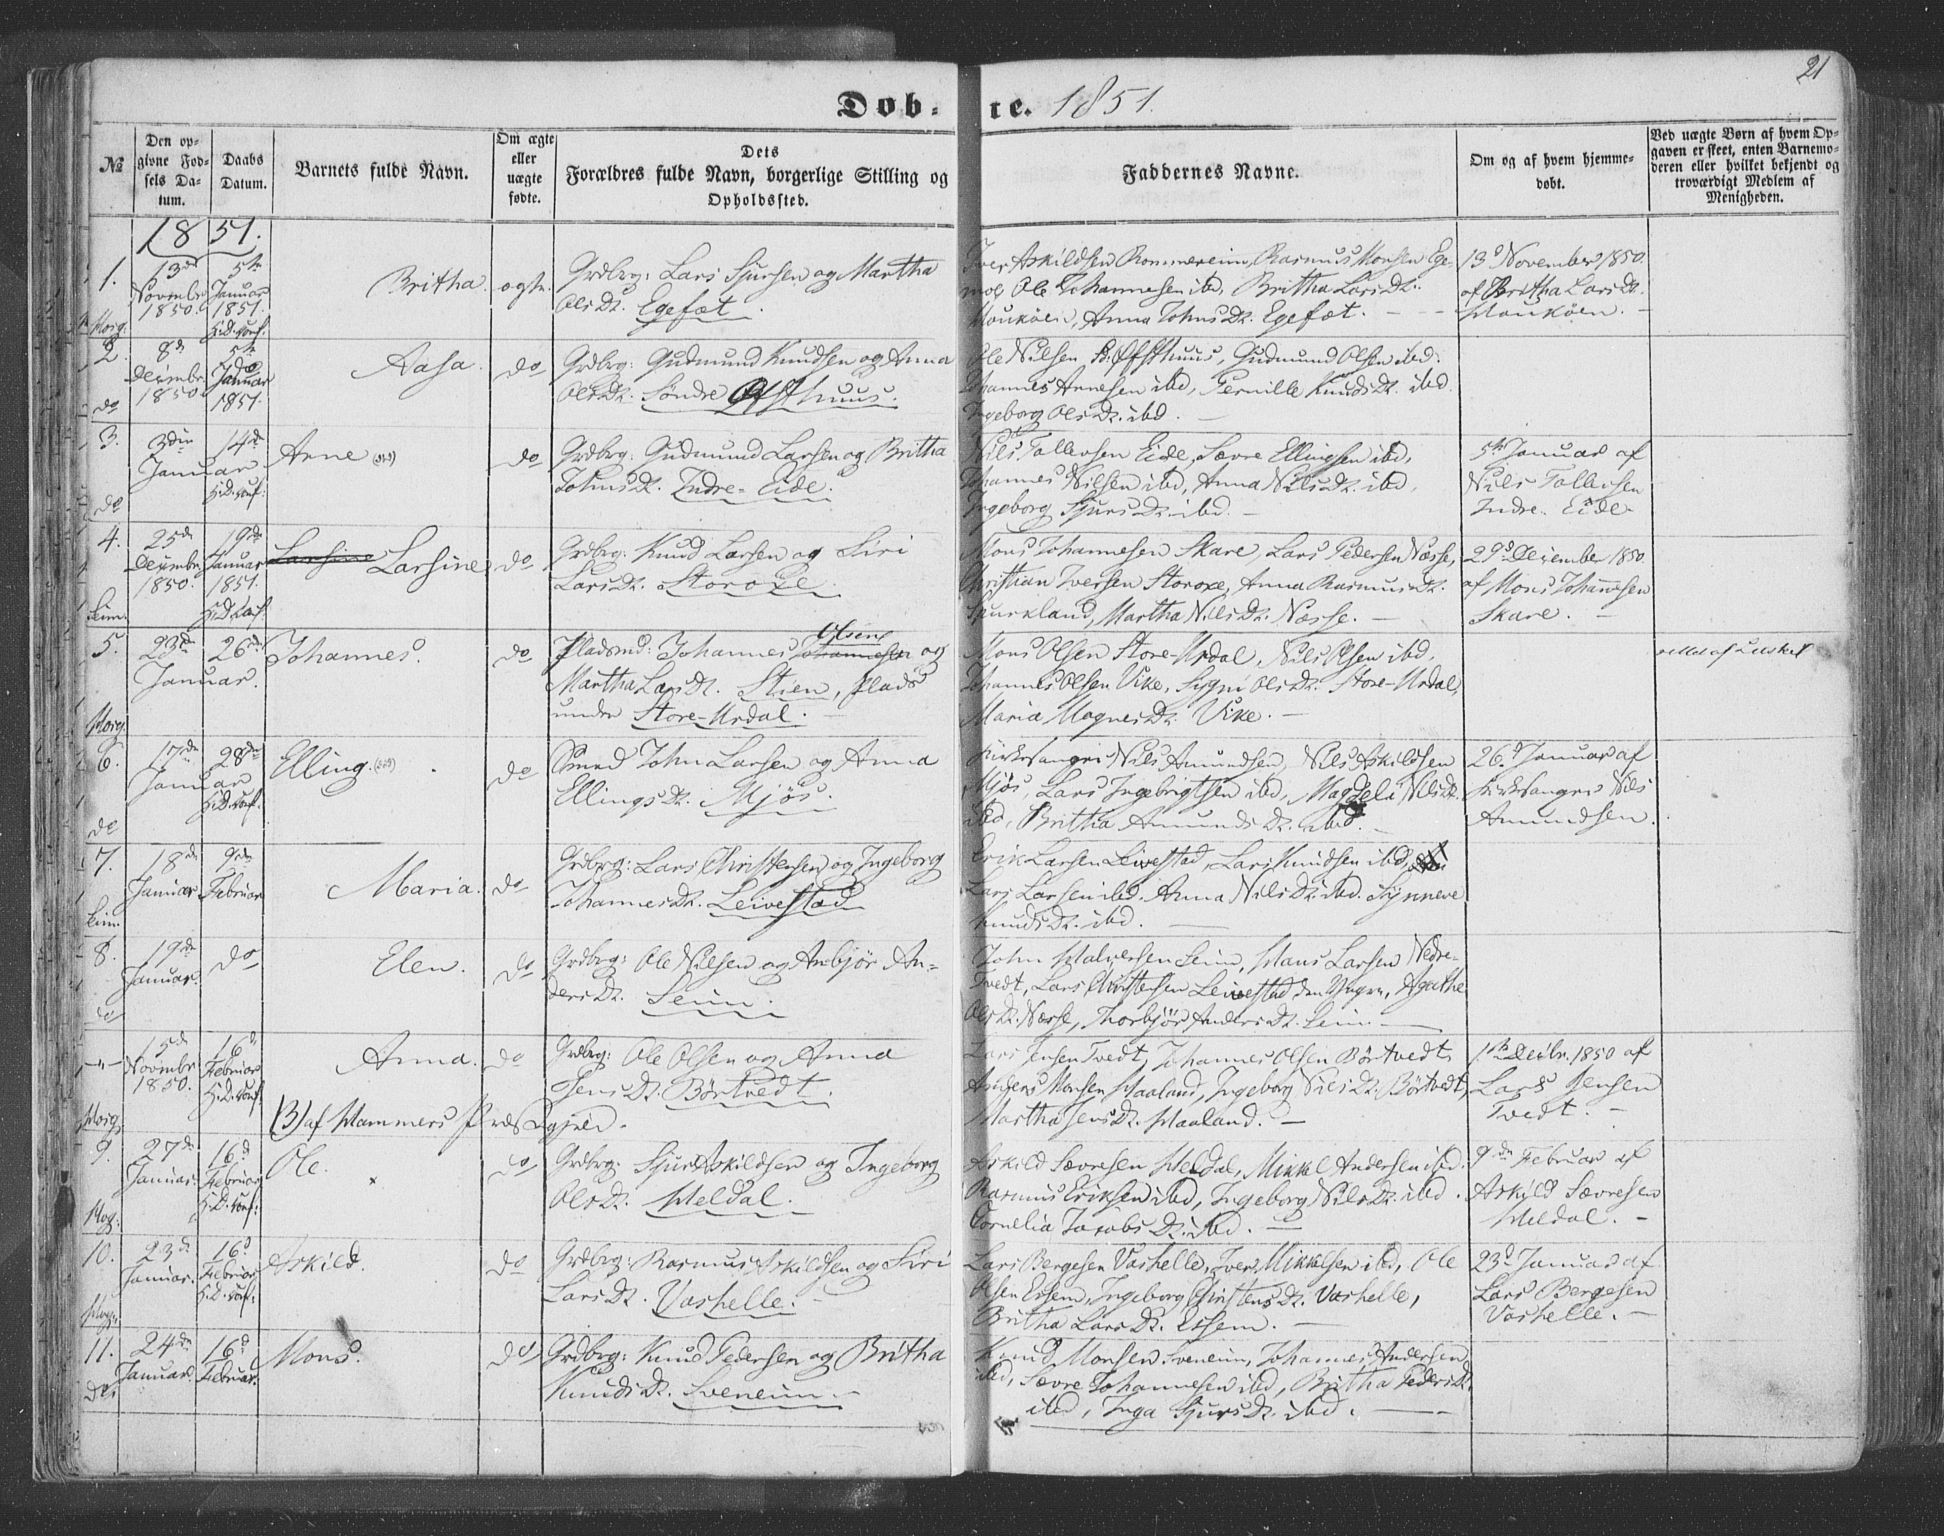 21
Døb- te. 1851.
№
Den op-
givne Fød-
sels Da-
tum.
Daabs
Datum.
Barnets fulde Navn.
Om ægte
eller
uægte
fødte.
Dets
Forældres fulde Navn, borgerlige Stilling og
Opholdssted.
Faddernes Navne.
Om og af hvem hjemme-
døbt.
Ved uægte Børn af hvem Op-
gaven er skeet, enten Barnemo-
deren eller hvilket bekjendt og
troværdigt Medlem af
Menigheden.
1851.
1.
13de
Novembr
1850.
5te
Januar
1851.
H.D. conf.
Britha.
Grdbrg: Lars Sjursen og Martha
Olsdt. Egefæt.
Iver Askildsen Rommereim, Rasmus Monsen Ege-
Ole Johannesen ibd, Britha Larsdt.
Moukøen, Anna Johnsdt. Egefæt.
13d November 1850.
af Britha Larsdt.
Moukøen.
2.
8de
Decembr
1850
5te
Januar
1851.
Aasa.
do
Grdbrg: Gudmund Knudsen og Anna
Olsdt. Søndre Øfsthuus.
Ole Nilsen S. Øfsthuus, Gudmund Olsen ibd.
Johannes Arnesen ibd, Pernille Knudsdt. ibd
Ingeborg Olsdt. ibd.
do
3.
3die
Januar
14de
H.D. conf:
Arne
do
Grdbrg: Gudmund Larsen og Britha
Johnsdt. Indre-Eide.
Nils Tollevsen Eide, Sævre Ellingsen ibd,
Johannes Nilsen ibd, Anna Nilsdt. ibd,
Ingeborg Sjursdt. ibd.
5te Januar af
Nils Tollevsen
Indre-Eide.
do
4.
25de
Decembr
1850.
19de
Januar
1851.
H.D. conf.
Larsine Larsine
do
Grdbrg: Knud Larsen og Siri
Larsdt. Storoxe.
Mons Johannesen Skare, Lars Pedersen Næsse,
Christian Iversen Storoxe, Anna Rasmusdt.
Spurkland, Martha Nilsdt. Næsse.
29d December 1850.
af Mons Johannesen
Skare.
Seim.
5.
23de
Januar.
26de
Johannes.
do
Pladsmd: Johannes Johannesen Olsen og
Martha Larsdt. Stien, Plads
under Store-Urdal.
Mons Olsen Store-Urdal, Nils Olsen ibd.
Johannes Olsen Vike, Sygni Olsdt. Store-Urdal,
Maria Magnesdt. Vike.
6.
17de
Januar
28de
H.D. conf.
Elling.
do
Smed John Larsen og Anna
Ellingsdt. Mjøs.
Kirkesanger Nils Amundsen, Nils Askildsen
Mjøs, Lars Ingebrigtsen ibd, Magdeli Nilsdt.
ibd, Britha Amundsdt. ibd.
26d Januar af
Kirkesanger Nils
Amundsen.
do
7.
18de
Januar
9de
Februar
Maria.
do
Grdbrg: Lars Christensen og Ingeborg
Johannesdt. Leivestad
Erik Larsen Leivestad, Lars Knudsen ibd,
Lars Larsen ibd. Anna Nilsdt. ibd. Synneve
Knudsdt. ibd.
Seim.
8.
19de
Januar.
do
Elen.
do
Grdbrg: Ole Nilsen og Anbjør An-
dersdt. Seim.
John Halversen Seim, Hans Larsen Nedre-
Tvedt, Lars Christensen Leivestad den Yngre, Agathe
Olsdt. Næsse, Thorbjør Andersdt. Seim.
do
15de
Novembr
1850.
16d
Februar
H.D. conf.
Anna.
do
Grdbrg: Ole Olsen og Anna
Jensdt. Børtvedt.
Lars Jensen Tvedt, Johannes Olsen Børtvedt,
Anders Monsen Maaland, Ingeborg Nilsdt. Børtvedt,
Martha Jensdt. Maaland.
1te Decbr. 1850 af
Lars Jensen
Tvedt.
(3) af Hammers Præstegjeld.
9.
27de
Januar.
16d
Februar
H.D. conf:
Ole.
do
Grdbrg: Sjur Askildsen og Ingeborg
Olsdt. Meldal.
Askild Sævresen Meldal, Mikkel Andersen ibd.
Rasmus Eriksen ibd, Ingeborg Nilsdt. ibd.
Cornelia Jacobsdt. ibd.
9de Februar af
Askild Sævresen
Meldal.
10.
23de
Januar.
16d
Februar
H.D. conf:
Askild.
do
Grdbrg: Rasmus Askildsen og Siri
Larsdt. Vashelle.
Lars Bergesen Vashelle, Iver Mikkelsen ibd, Ole
Olsen Essem, Ingeborg Christensdt. Vashelle,
Britha Larsdt. Essem.
23d Januar af
Lars Bergesen
Vashelle.
11.
24de
Januar.
16d
Februar.
Mons.
do
Grdbrg: Knud Pedersen og Britha
Knudsdt. Sveneim.
Knud Monsen Sveneim, Johannes Andersen
ibd, Sævre Johannesen ibd, Britha Pedersdt.
ibd, Inga Sjursdt. ibd.